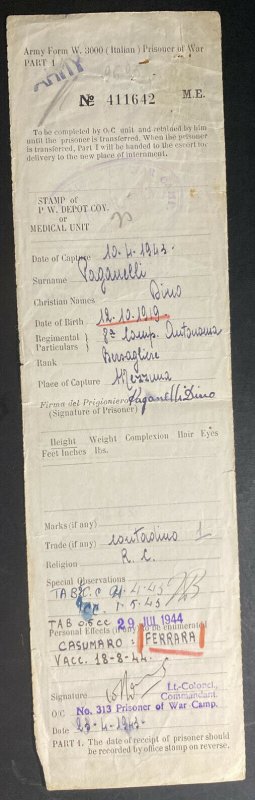 Army Form W. 3000 ( Italian ) Prisoner of War
PART 1
ARMY
№ 411642 M.E.
To be completed by O.C unit and retained by him
until the prisoner is transferred. When the prisoner
is transferred, Part I will be handed to the escort for
delivery to the new place of internment.
STAMP of
P. W. DEPOT COY.
or
MEDICAL UNIT
Date of Capture 10-4-1943-
Surname Paganelli
Christian Names Dino
Date of Birth 12.10.1919
Regimental } 8ª Comp. Autonoma
Particulars }
Rank Bersagliere
Place of Capture
Firma del Prigioniero Paganelli Dino
(Signature of Prisoner)
Height Weight Complexion Hair Eyes
Feet Inches lbs.
Marks (if any)
Trade (if any) contadino 1
Religion R. C.
Special Observations
TAB C.C 4-43
1-5-43
TAB 0.5cc 29 JUL 1944
Personal Effects (if any) to be enumerated
CASUMARO : FERRARA
VACC. 18-8-44.
Signature Lt-Colonel,
Commandant.
O/C No. 313 Prisoner of War Camp.
Date 23-4-1943-
PART 1. The date of receipt of prisoner should
be recorded by office stamp on reverse.